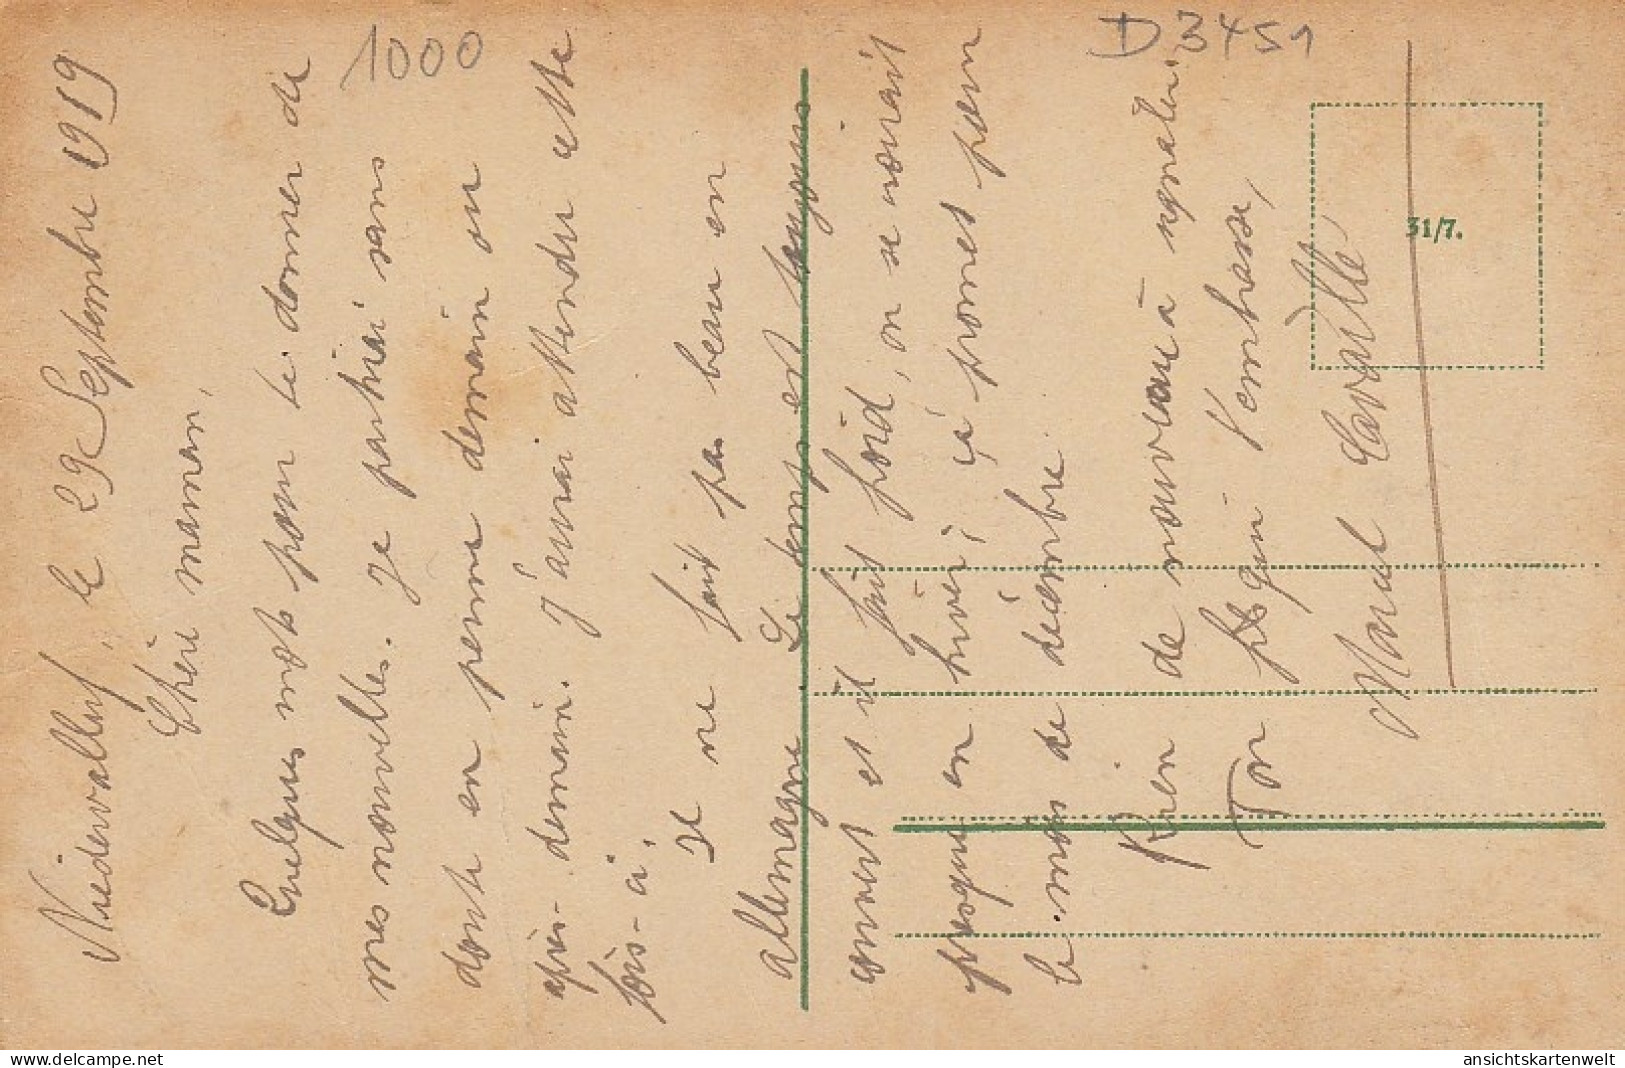 1000
D 3451
31/7.
Niedervalluf, le 29 Septembre 1919
Chère maman,
Quelques mots pour te donner de
mes nouvelles. Je partirai sans
doute en perme demain ou
après-demain. J'aurai attendu cette
fois-ci.
Il ne fait pas beau en
Allemagne. Le temps est toujours
couvert et il fait froid, on se croirait
presque en hiver; ça promet pour
le mois de décembre.
Rien de nouveau à signaler.
Ton fils qui t'embrasse,
Marcel
delcampe.net
ansichtskartenwelt